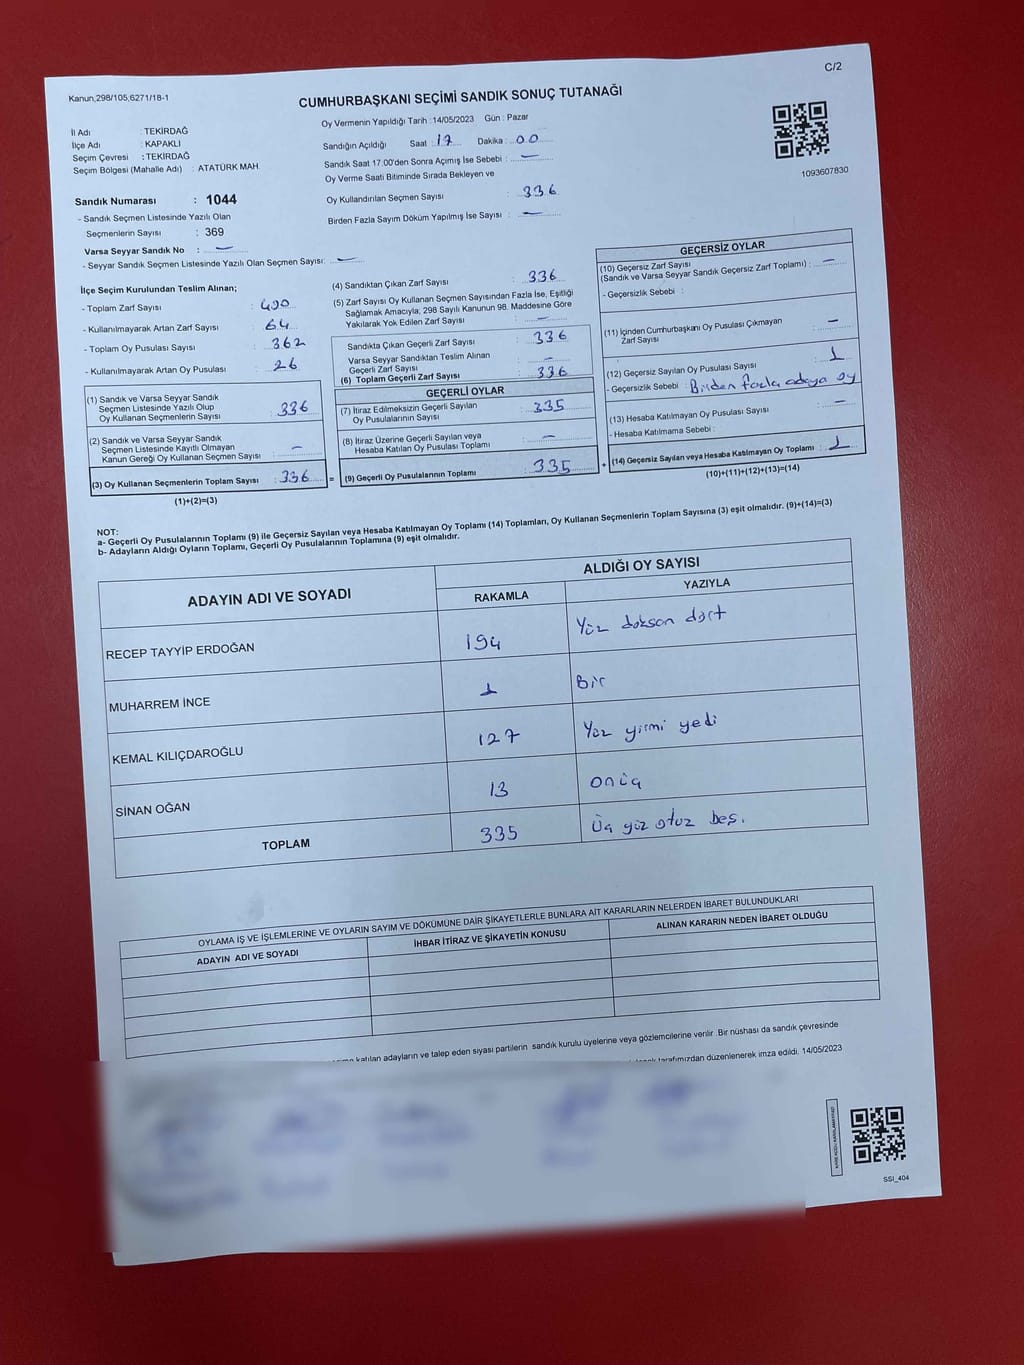 C/2
Kanun,298/105,6271/18-1
CUMHURBAŞKANI SEÇİMİ SANDIK SONUÇ TUTANAĞI
İl Adı : TEKİRDAĞ
İlçe Adı : KAPAKLI
Seçim Çevresi : TEKİRDAĞ
Seçim Bölgesi (Mahalle Adı) : ATATÜRK MAH.
Sandık Numarası : 1044
- Sandık Seçmen Listesinde Yazılı Olan
Seçmenlerin Sayısı : 369
Varsa Seyyar Sandık No : —
- Seyyar Sandık Seçmen Listesinde Yazılı Olan Seçmen Sayısı: —
Oy Vermenin Yapıldığı Tarih : 14/05/2023 Gün : Pazar
Sandığın Açıldığı Saat : 17 Dakika : 00
Sandık Saat 17:00'den Sonra Açımış İse Sebebi : —
Oy Verme Saati Bitiminde Sırada Bekleyen ve
Oy Kullandırılan Seçmen Sayısı : 336
Birden Fazla Sayım Döküm Yapılmış İse Sayısı : —
1093607830
İlçe Seçim Kurulundan Teslim Alınan;
- Toplam Zarf Sayısı : 400
- Kullanılmayarak Artan Zarf Sayısı : 64
- Toplam Oy Pusulası Sayısı : 362
- Kullanılmayarak Artan Oy Pusulası : 26
(1) Sandık ve Varsa Seyyar Sandık
Seçmen Listesinde Yazılı Olup
Oy Kullanan Seçmenlerin Sayısı : 336
(2) Sandık ve Varsa Seyyar Sandık
Seçmen Listesinde Kayıtlı Olmayan
Kanun Gereği Oy Kullanan Seçmen Sayısı : —
(3) Oy Kullanan Seçmenlerin Toplam Sayısı : 336
(1)+(2)=(3)
(4) Sandıktan Çıkan Zarf Sayısı : 336
(5) Zarf Sayısı Oy Kullanan Seçmen Sayısından Fazla İse, Eşitliği
Sağlamak Amacıyla, 298 Sayılı Kanunun 98. Maddesine Göre
Yakılarak Yok Edilen Zarf Sayısı : —
Sandıkta Çıkan Geçerli Zarf Sayısı : 336
Varsa Seyyar Sandıktan Teslim Alınan
Geçerli Zarf Sayısı : —
(6) Toplam Geçerli Zarf Sayısı : 336
GEÇERLİ OYLAR
(7) İtiraz Edilmeksizin Geçerli Sayılan
Oy Pusulalarının Sayısı : 335
(8) İtiraz Üzerine Geçerli Sayılan veya
Hesaba Katılan Oy Pusulası Toplamı : —
= (9) Geçerli Oy Pusulalarının Toplamı : 335
GEÇERSİZ OYLAR
(10) Geçersiz Zarf Sayısı
(Sandık ve Varsa Seyyar Sandık Geçersiz Zarf Toplamı) : —
- Geçersizlik Sebebi :
(11) İçinden Cumhurbaşkanı Oy Pusulası Çıkmayan
Zarf Sayısı : —
(12) Geçersiz Sayılan Oy Pusulası Sayısı : 1
- Geçersizlik Sebebi : Birden fazla adaya oy
(13) Hesaba Katılmayan Oy Pusulası Sayısı : —
- Hesaba Katılmama Sebebi :
+ (14) Geçersiz Sayılan veya Hesaba Katılmayan Oy Toplamı : 1
(10)+(11)+(12)+(13)=(14)
NOT:
a- Geçerli Oy Pusulalarının Toplamı (9) ile Geçersiz Sayılan veya Hesaba Katılmayan Oy Toplamı (14) Toplamları, Oy Kullanan Seçmenlerin Toplam Sayısına (3) eşit olmalıdır. (9)+(14)=(3)
b- Adayların Aldığı Oyların Toplamı, Geçerli Oy Pusulalarının Toplamına (9) eşit olmalıdır.
ADAYIN ADI VE SOYADI
ALDIĞI OY SAYISI
RAKAMLA YAZIYLA
RECEP TAYYİP ERDOĞAN 194 Yüz doksan dört
MUHARREM İNCE 1 Bir
KEMAL KILIÇDAROĞLU 127 Yüz yirmi yedi
SİNAN OĞAN 13 onüç
TOPLAM 335 Üç yüz otuz beş.
OYLAMA İŞ VE İŞLEMLERİNE VE OYLARIN SAYIM VE DÖKÜMÜNE DAİR ŞİKAYETLERLE BUNLARA AİT KARARLARIN NELERDEN İBARET BULUNDUKLARI
ADAYIN ADI VE SOYADI İHBAR İTİRAZ VE ŞİKAYETİN KONUSU ALINAN KARARIN NEDEN İBARET OLDUĞU
katılan adayların ve talep eden siyasi partilerin sandık kurulu üyelerine veya gözlemcilerine verilir .Bir nüshası da sandık çevresinde
tarafımızdan düzenlenerek imza edildi. 14/05/2023
SSI_404